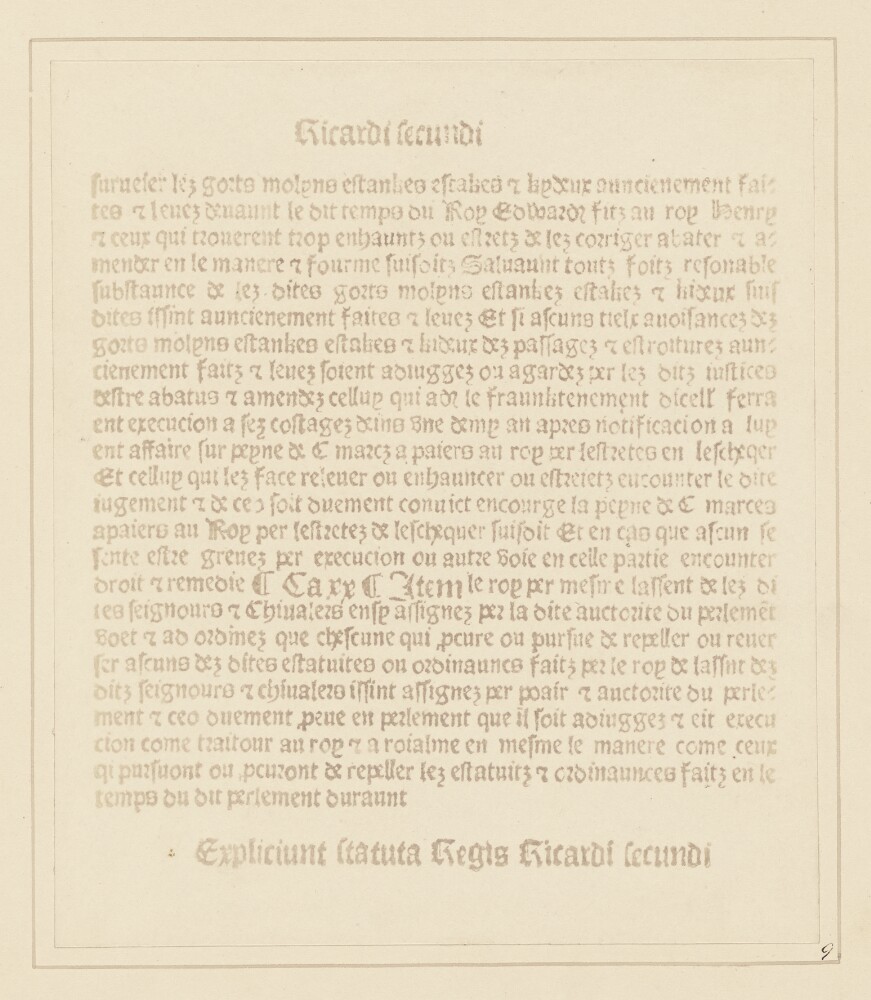 Ricardi secundi
surueier lez gorts molyns estankes estakes ⁊ kydeux auncienement fai⸗
tes ⁊ leuez deuaunt le dit temps du Roy Edwardz fitz au roy Henry
⁊ ceux qui trouerent trop enhauntz ou estretz de lez corriger abater ⁊ a⸗
mender en le manere ⁊ fourme suisditz Saluaunt toutz foitz resonable
substaunce de lez dites gorts molyns estankez estakez ⁊ kideux suis
dites issint auncienement faites ⁊ leuez Et si ascuns tielx anoisancez dez
gorts molyns estankes estakes ⁊ kideux dez passagez ⁊ estroiturez aun⸗
cienement faitz ⁊ leuez soient adiuggez ou agardez per lez ditz iustices
destre abatus ⁊ amendez celluy qui adz le fraunktenement dicell ferra
ent execucion a sez costagez deins vne demy an apres notificacion a luy
ent affaire sur peyne de C marcz a paiers au roy per lestretes en lescheqer
Et celluy qui lez face releuer ou enhauncer ou estreietz encounter le dite
iugement ⁊ de ceo soit duement conuict encourge la peyne de C marces
apaiers au Roy per lestretez de leschequer suisdit Et en cas que ascun se
sente estre greuez per execucion ou autre voie en celle partie encounter
droit ⁊ remedie ¶ Ca xx ¶ Item le roy per mesme lassent de lez di
tes seignours ⁊ Chiualers ensy assignez per la dite auctorite du perlemēt
voet ⁊ ad ordinez que chescune qui ꝓcure ou pursue de repeller ou reuer
ser ascuns dez dites estatuites ou ordinaunces faitz per le roy de lassnt dez
ditz seignours ⁊ chiualers issint assignez per poair ⁊ auctorite du perle⸗
ment ⁊ ceo duement ꝓeue en perlement que il soit adiuggez ⁊ eit execu
cion come traitour au roy ⁊ a roialme en mesme le manere come ceux
qi pursuont ou ꝓcuront de repeller lez estatuitz ⁊ ordinaunces faitz en le
temps du dit perlement duraunt
Expliciunt statuta Regis Ricardi secundi
9